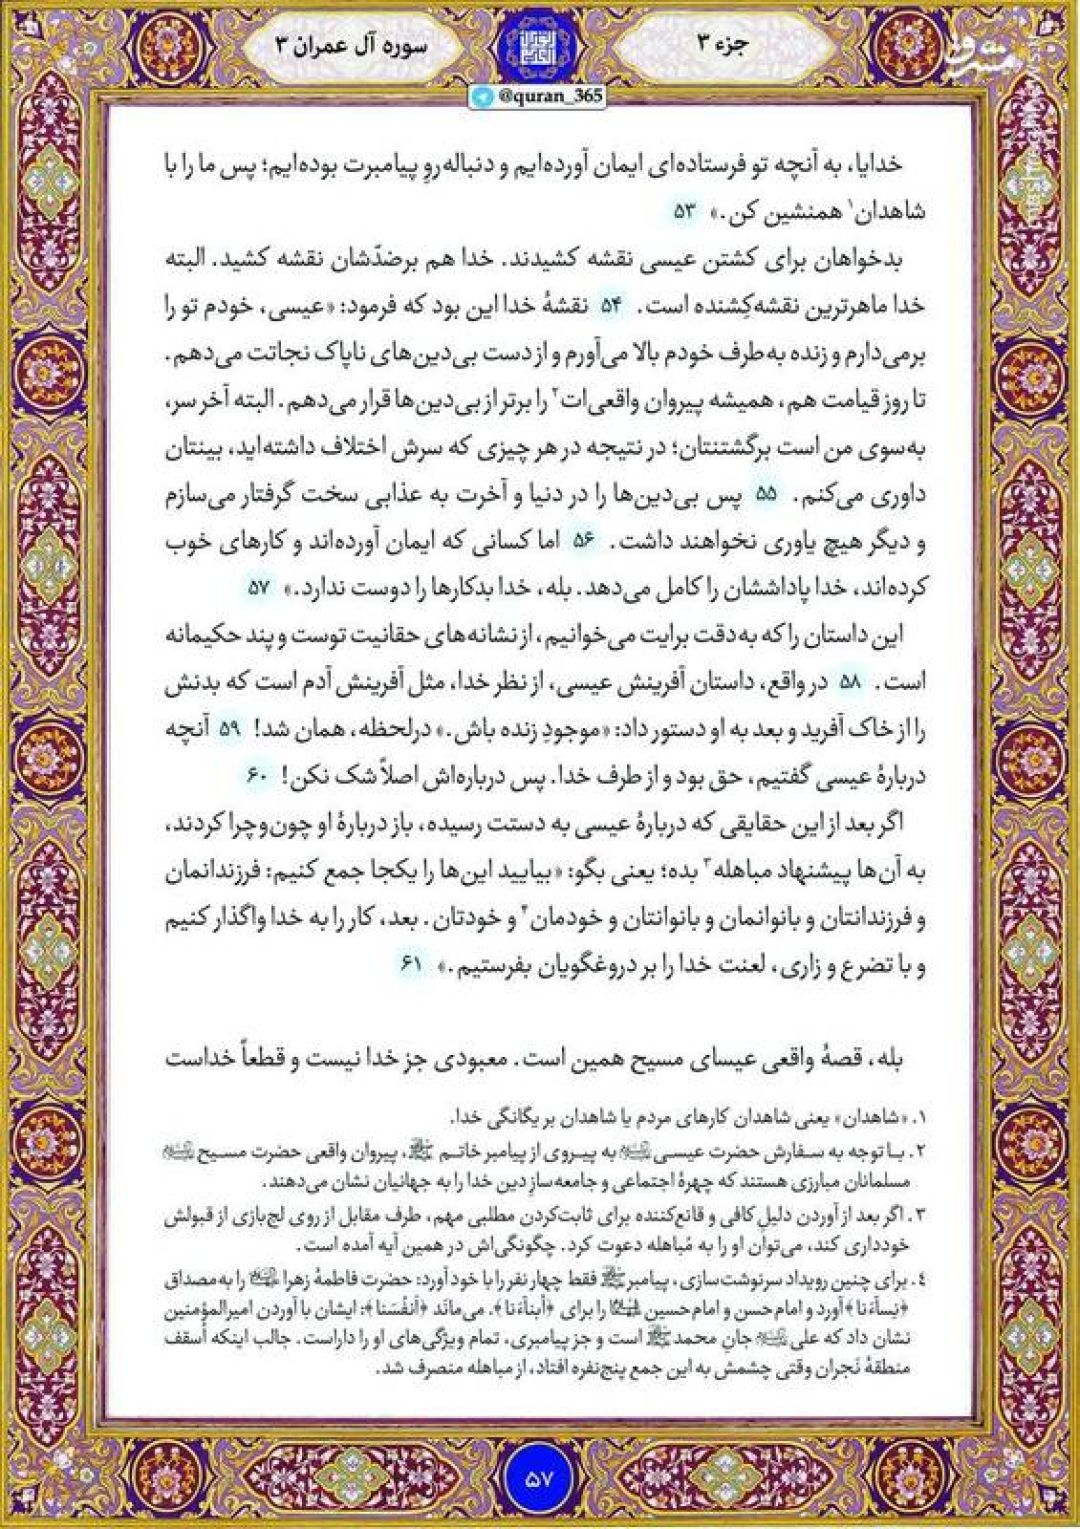 جزء ۳
سوره آل عمران ۳
مشرق
@quran_365
خدایا، به آنچه تو فرستاده‌ای ایمان آورده‌ایم و دنباله‌روِ پیامبرت بوده‌ایم؛ پس ما را با
شاهدان۱ همنشین کن.» ۵۳
بدخواهان برای کشتن عیسی نقشه کشیدند. خدا هم برضدّشان نقشه کشید. البته
خدا ماهرترین نقشه‌کِشنده است. ۵۴ نقشهٔ خدا این بود که فرمود: «عیسی، خودم تو را
برمی‌دارم و زنده به‌طرف خودم بالا می‌آورم و از دست بی‌دین‌های ناپاک نجاتت می‌دهم.
تا روز قیامت هم، همیشه پیروان واقعی‌ات۲ را برتر از بی‌دین‌ها قرار می‌دهم. البته آخر سر،
به‌سوی من است برگشتنتان؛ در نتیجه در هر چیزی که سرش اختلاف داشته‌اید، بینتان
داوری می‌کنم. ۵۵ پس بی‌دین‌ها را در دنیا و آخرت به عذابی سخت گرفتار می‌سازم
و دیگر هیچ یاوری نخواهند داشت. ۵۶ اما کسانی که ایمان آورده‌اند و کارهای خوب
کرده‌اند، خدا پاداششان را کامل می‌دهد. بله، خدا بدکارها را دوست ندارد.» ۵۷
این داستان را که به‌دقت برایت می‌خوانیم، از نشانه‌های حقانیت توست و پند حکیمانه
است. ۵۸ در واقع، داستان آفرینش عیسی، از نظر خدا، مثل آفرینش آدم است که بدنش
را از خاک آفرید و بعد به او دستور داد: «موجودِ زنده باش.» درلحظه، همان شد! ۵۹ آنچه
دربارهٔ عیسی گفتیم، حق بود و از طرف خدا. پس درباره‌اش اصلاً شک نکن! ۶۰
اگر بعد از این حقایقی که دربارهٔ عیسی به دستت رسیده، باز دربارهٔ او چون‌وچرا کردند،
به آن‌ها پیشنهاد مباهله۳ بده؛ یعنی بگو: «بیایید این‌ها را یکجا جمع کنیم: فرزندانمان
و فرزندانتان و بانوانمان و بانوانتان و خودمان۴ و خودتان. بعد، کار را به خدا واگذار کنیم
و با تضرع و زاری، لعنت خدا را بر دروغگویان بفرستیم.» ۶۱
بله، قصهٔ واقعی عیسای مسیح همین است. معبودی جز خدا نیست و قطعاً خداست
۱. «شاهدان» یعنی شاهدان کارهای مردم یا شاهدان بر یگانگی خدا.
۲. با توجه به سفارش حضرت عیسی به پیروی از پیامبر خاتم ﷺ، پیروان واقعی حضرت مسیح
مسلمانان مبارزی هستند که چهرهٔ اجتماعی و جامعه‌سازِ دین خدا را به جهانیان نشان می‌دهند.
۳. اگر بعد از آوردن دلیل کافی و قانع‌کننده برای ثابت‌کردن مطلبی مهم، طرف مقابل از روی لج‌بازی از قبولش
خودداری کند، می‌توان او را به مُباهله دعوت کرد. چگونگی‌اش در همین آیه آمده است.
۴. برای چنین رویداد سرنوشت‌سازی، پیامبر ﷺ فقط چهار نفر را با خود آورد: حضرت فاطمهٔ زهرا را به‌مصداق
﴿نِساءَنا﴾ آورد و امام حسن و امام حسین را برای ﴿أبناءَنا﴾. می‌ماند ﴿أنفُسَنا﴾: ایشان با آوردن امیرالمؤمنین
نشان داد که علی جانِ محمد ﷺ است و جز پیامبری، تمام ویژگی‌های او را داراست. جالب اینکه اُسقف
منطقهٔ نَجران وقتی چشمش به این جمع پنج‌نفره افتاد، از مباهله منصرف شد.
۵۷